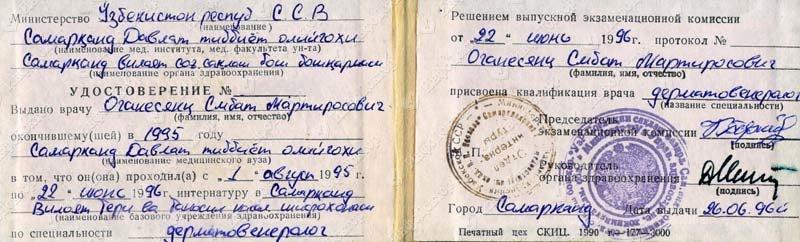 Министерство Узбекистон респуб С С В
(наименование)
Самарканд Давлат тиббиёт олийгохи
(наименование мед. института, мед. факультета ун-та)
Самарканд вилоят соғ. саклаш бош бошкармаси
(наименование органа здравоохранения)
УДОСТОВЕРЕНИЕ №
Выдано врачу Оганесянц Смбат Мартиросович
(фамилия, имя, отчество)
окончившему(шей) в 1995 году
Самарканд Давлат тиббиёт олийгохи
(наименование медицинского вуза)
в том, что он(она) проходил(а) с „ 1 " август 1995 г.
по „ 22 " июнь 1996 г. интернатуру в Самарканд
Вилоят Тери ва таносил касал шифохонаси
(наименование базового учреждения здравоохранения)
по специальности дерматовенеролог
Решением выпускной экзаменационной комиссии
от „ 22 " июнь 1996 г. протокол №
Оганесянц Смбат Мартиросович
(фамилия, имя, отчество)
присвоена квалификация врача дерматовенеролог
(название специальности)
Председатель
экзаменационной комиссии
(подпись)
Руководитель
органа здравоохранения
(подпись)
Город Самарканд Дата выдачи 26.06.96й
Печатный цех СКИЦ. 1990 177—3000